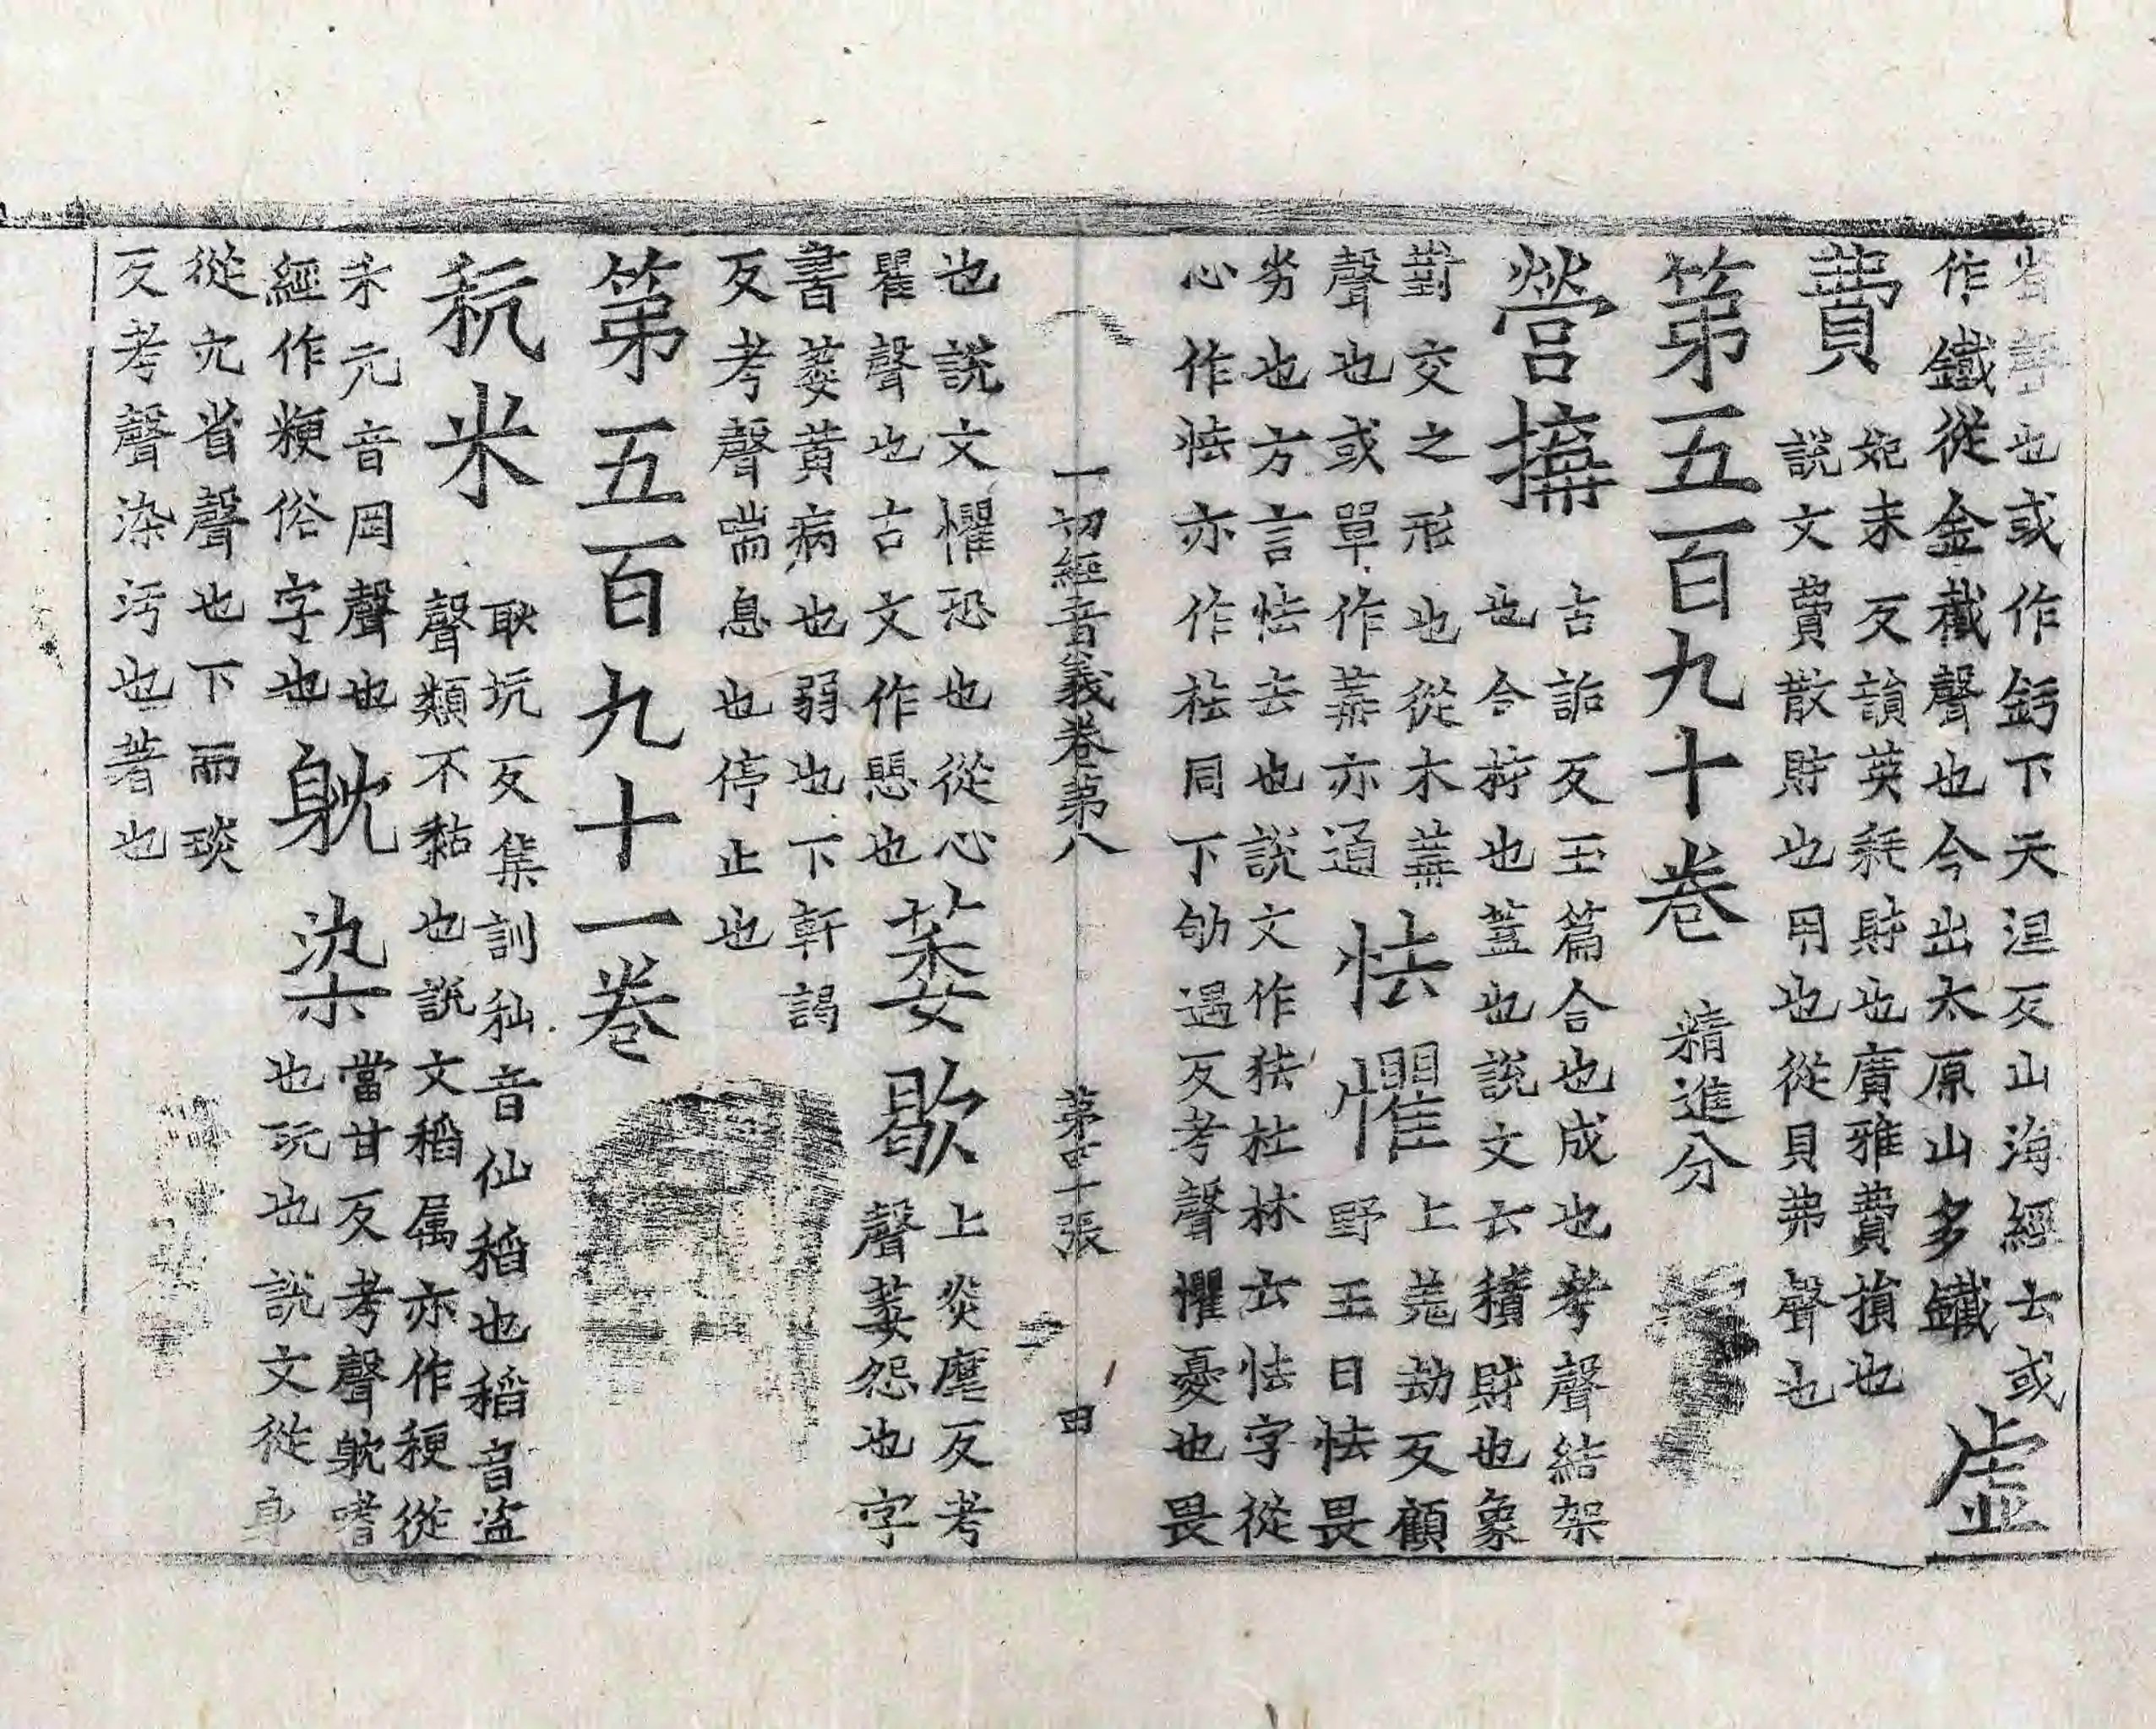 聲也或作鈣下天涅反山海經云或
作鐵從金𢧜聲也今出太原山多鐵
虛
費
妃未反韻英耗財也廣雅費損也
說文費散財也用也從貝弗聲也
第五百九十卷 精進分
營搆
古詬反玉篇合也成也考聲結架
也合拧也蓋也說文云積財也象
對交之形也從木冓
聲也或單作冓亦通
怯懼
上羗劫反顧
野王曰怯畏
劣也方言怯去也說文作㹤杜林云怯字從
心作怯亦作㹤同下劬遇反考聲懼憂也畏
一切經音義卷苐八 苐四十張 田
也說文懼恐也從心
瞿聲也古文作愳也
萎歇
上委爲反考
聲萎怨也字
書萎黄病也弱也下軒謁
反考聲喘息也停止也
第五百九十一卷
秔米
耿坑反集訓秈音仙稻也稻音盗
聲類不黏也說文稻属亦作稉從
禾元音罡聲也
經作粳俗字也
躭染
當甘反考聲躭嗜
也玩也說文從身
從冘省聲也下而琰
反考聲染汚也著也